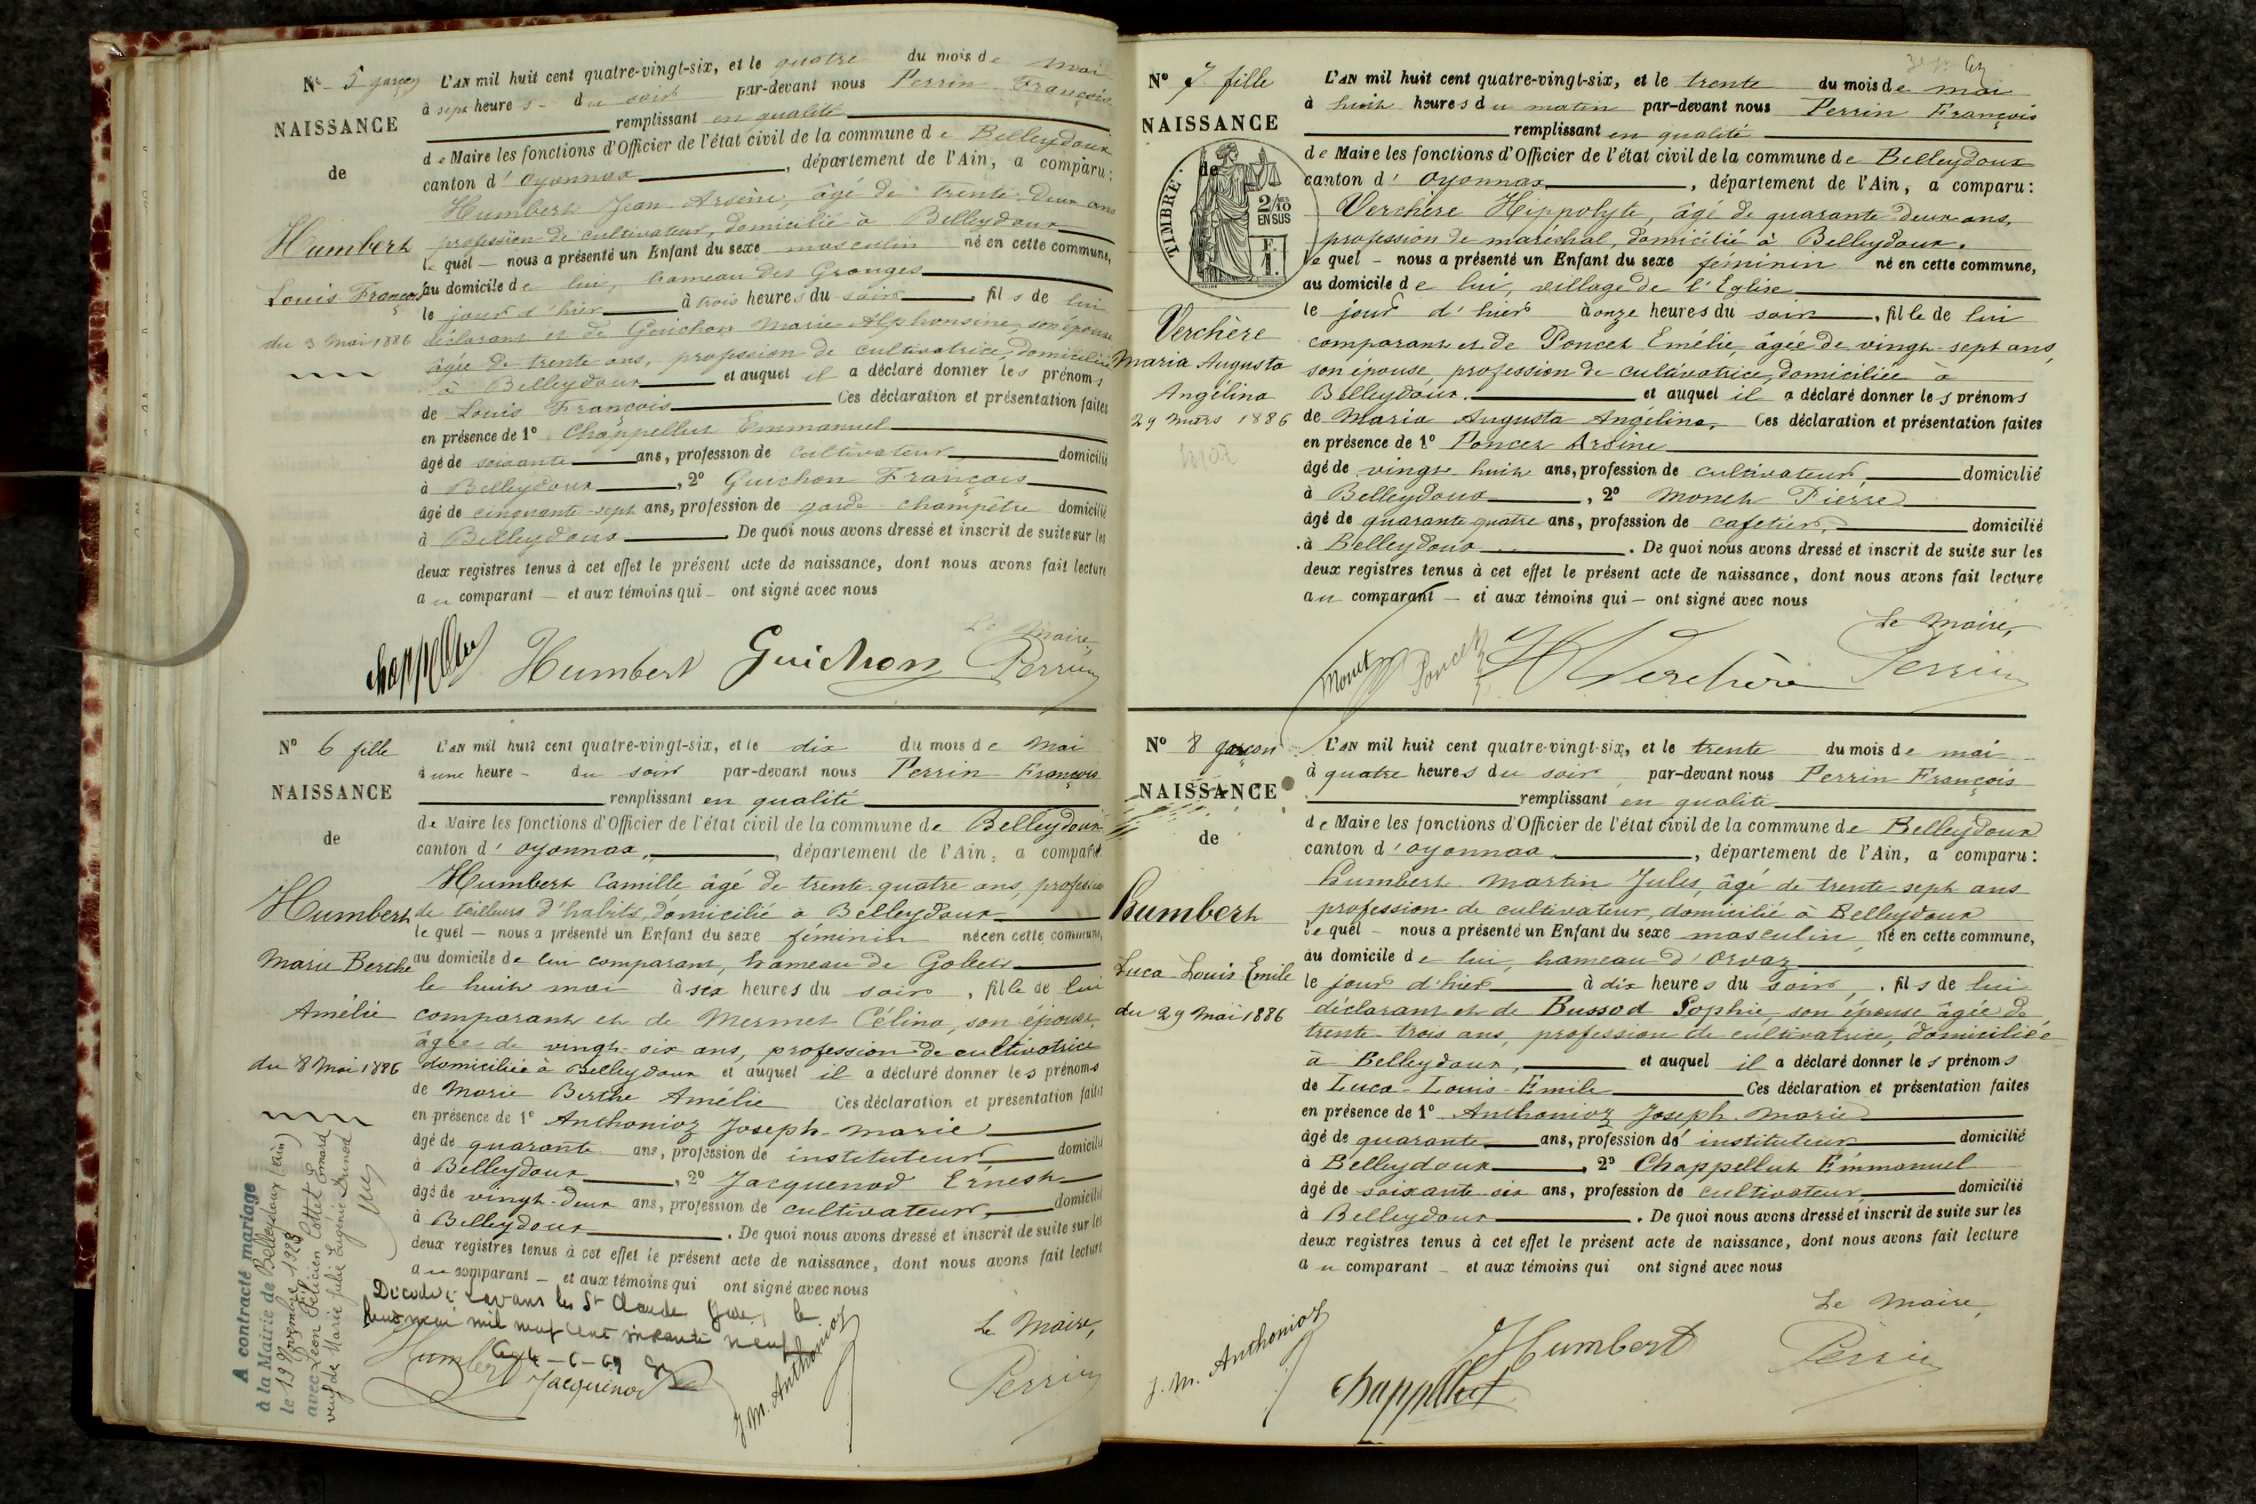 N° 5 garçon
NAISSANCE
de
Humbert
Louis François
du 3 Mai 1886
L'AN mil huit cent quatre-vingt-six, et le quatre du mois de mai
à sept heures du soir par-devant nous Perrin François
remplissant en qualité
de Maire les fonctions d'Officier de l'état civil de la commune de Belleydoux
canton d'Oyonnax, département de l'Ain, a comparu:
Humbert Jean Arsène, âgé de trente-deux ans
profession de cultivateur, domicilié à Belleydoux
lequel nous a présenté un Enfant du sexe masculin né en cette commune,
au domicile de lui, hameau des Granges
le jour d'hier à trois heures du soir, fils de lui
déclarant et de Guichon Marie Alphonsine, son épouse
âgée de trente ans, profession de cultivatrice, domiciliée
à Belleydoux et auquel il a déclaré donner les prénoms
de Louis François Ces déclaration et présentation faites
en présence de 1° Chappellut Emmanuel
âgé de soixante ans, profession de cultivateur domicilié
à Belleydoux, 2° Guichon François
âgé de cinquante-sept ans, profession de garde champêtre domicilié
à Belleydoux. De quoi nous avons dressé et inscrit de suite sur les
deux registres tenus à cet effet le présent acte de naissance, dont nous avons fait lecture
au comparant et aux témoins qui ont signé avec nous
Le Maire,
Chappellut Humbert Guichon Perrin
N° 6 fille
NAISSANCE
de
Humbert
Marie Berthe
Amélie
du 8 Mai 1886
A contracté mariage
à la Mairie de Belleydoux (Ain)
le 19 Novembre 1928
avec Léon Félicien Cottet Emard
veuf de Marie Julie Eugénie Brunod
L'AN mil huit cent quatre-vingt-six, et le dix du mois de Mai
à une heure du soir par-devant nous Perrin François
remplissant en qualité
de Maire les fonctions d'Officier de l'état civil de la commune de Belleydoux
canton d'Oyonnax, département de l'Ain, a comparu
Humbert Camille âgé de trente-quatre ans, profession
de tailleurs d'habits, domicilié à Belleydoux
lequel nous a présenté un Enfant du sexe féminin née en cette commune,
au domicile de lui comparant, hameau de Gobet
le huit mai à six heures du soir, fille de lui
comparant et de Mermet Célina, son épouse,
âgée de vingt-six ans, profession de cultivatrice
domiciliée à Belleydoux et auquel il a déclaré donner les prénoms
de Marie Berthe Amélie Ces déclaration et présentation faites
en présence de 1° Anthonioz Joseph-marie
âgé de quarante ans, profession de instituteur domicilié
à Belleydoux, 2° Jacquenod Ernest
âgé de vingt-deux ans, profession de cultivateur, domicilié
à Belleydoux. De quoi nous avons dressé et inscrit de suite sur les
deux registres tenus à cet effet le présent acte de naissance, dont nous avons fait lecture
au comparant et aux témoins qui ont signé avec nous
Décédée à Lavans les St Claude Jura, le
huit mai mil neuf cent soixante neuf
4-6-69
Le Maire,
Humbert Jacquenod J. M. Anthonioz Perrin
N° 7 fille
NAISSANCE
de
TIMBRE.
2/10 EN SUS
Verchère
Maria Augusta
Angélina
29 Mars 1886
L'AN mil huit cent quatre-vingt-six, et le trente du mois de mai
à huit heures du matin par-devant nous Perrin François
remplissant en qualité
de Maire les fonctions d'Officier de l'état civil de la commune de Belleydoux
canton d'Oyonnax, département de l'Ain, a comparu:
Verchère Hippolyte, âgé de quarante-deux ans,
profession de maréchal, domicilié à Belleydoux.
lequel nous a présenté un Enfant du sexe féminin né en cette commune,
au domicile de lui, village de l'Eglise
le jour d'hier à onze heures du soir, fille de lui
comparant et de Poncet Emélie, âgée de vingt-sept ans,
son épouse profession de cultivatrice, domiciliée à
Belleydoux. et auquel il a déclaré donner les prénoms
de Maria Augusta Angélina. Ces déclaration et présentation faites
en présence de 1° Poncet Arsène
âgé de vingt-huit ans, profession de cultivateur, domicilié
à Belleydoux, 2° Monet Pierre
âgé de quarante quatre ans, profession de cafetier, domicilié
à Belleydoux. De quoi nous avons dressé et inscrit de suite sur les
deux registres tenus à cet effet le présent acte de naissance, dont nous avons fait lecture
au comparant et aux témoins qui ont signé avec nous
Le Maire,
Monet Poncet H Verchère Perrin
N° 8 garçon
NAISSANCE
de
humbert
Luca Louis Emile
du 29 Mai 1886
L'AN mil huit cent quatre-vingt-six, et le trente du mois de mai
à quatre heures du soir par-devant nous Perrin François
remplissant en qualité
de Maire les fonctions d'Officier de l'état civil de la commune de Belleydoux
canton d'Oyonnax, département de l'Ain, a comparu:
humbert martin Jules, âgé de trente-sept ans
profession de cultivateur, domicilié à Belleydoux
lequel nous a présenté un Enfant du sexe masculin, né en cette commune,
au domicile de lui, hameau d'orvaz
le jour d'hier à dix heures du soir, fils de lui
déclarant et de Bussod Sophie, son épouse âgée de
trente-trois ans, profession de cultivatrice, domiciliée
à Belleydoux, et auquel il a déclaré donner les prénoms
de Luca-Louis-Emile Ces déclaration et présentation faites
en présence de 1° Anthonioz Joseph marie
âgé de quarante ans, profession de instituteur domicilié
à Belleydoux, 2° Chappellut Emmanuel
âgé de soixante-six ans, profession de cultivateur domicilié
à Belleydoux. De quoi nous avons dressé et inscrit de suite sur les
deux registres tenus à cet effet le présent acte de naissance, dont nous avons fait lecture
au comparant et aux témoins qui ont signé avec nous
Le Maire,
J. M. Anthonioz Chappellut Humbert Perrin